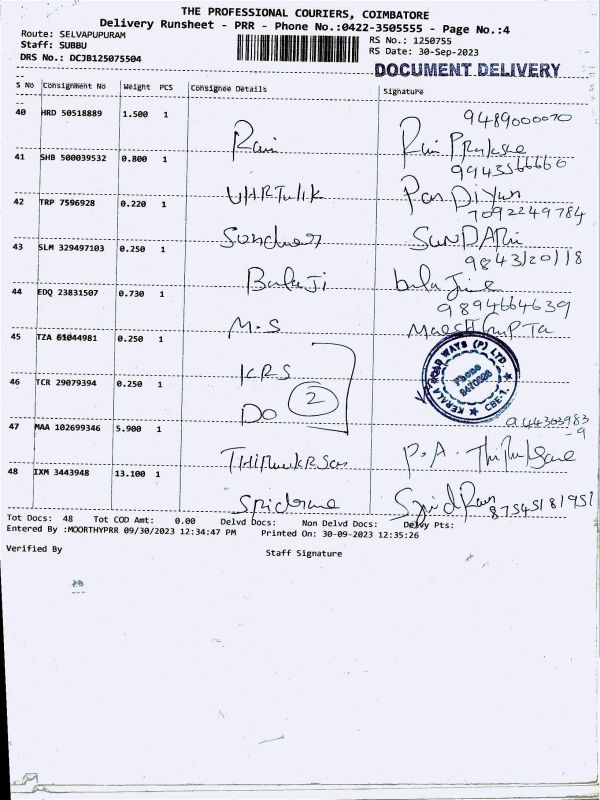 THE PROFESSIONAL COURIERS, COIMBATORE
Delivery Runsheet - PRR - Phone No.:0422-3505555 - Page No.:4
Route: SELVAPUPURAM
RS No.: 1250755
Staff: SUBBU
RS Date: 30-Sep-2023
DRS No.: DCJB125075504
DOCUMENT DELIVERY
S No Consignment No Weight PCS Consignee Details Signature
40 HRD 50518889 1.500 1 9489000070
41 SHB 500039532 0.800 1
42 TRP 7596928 0.220 1 7092249784
43 SLM 329497103 0.250 1 SUNDARi
9843120118
BalaJi
44 EDQ 23831507 0.730 1 9894664639
M.S
45 TZA 61044981 0.250 1
KRS
46 TCR 29079394 0.250 1
DO 2
KERALA ROAD WAYS (P) LTD
Phone
CBE-1.
47 MAA 102699346 5.900 1
P.A.
48 IXM 3443948 13.100 1
Tot Docs: 48 Tot COD Amt: 0.00 Delvd Docs: Non Delvd Docs: Delvy Pts:
Entered By :MOORTHYPRR 09/30/2023 12:34:47 PM Printed On: 30-09-2023 12:35:26
Verified By
Staff Signature